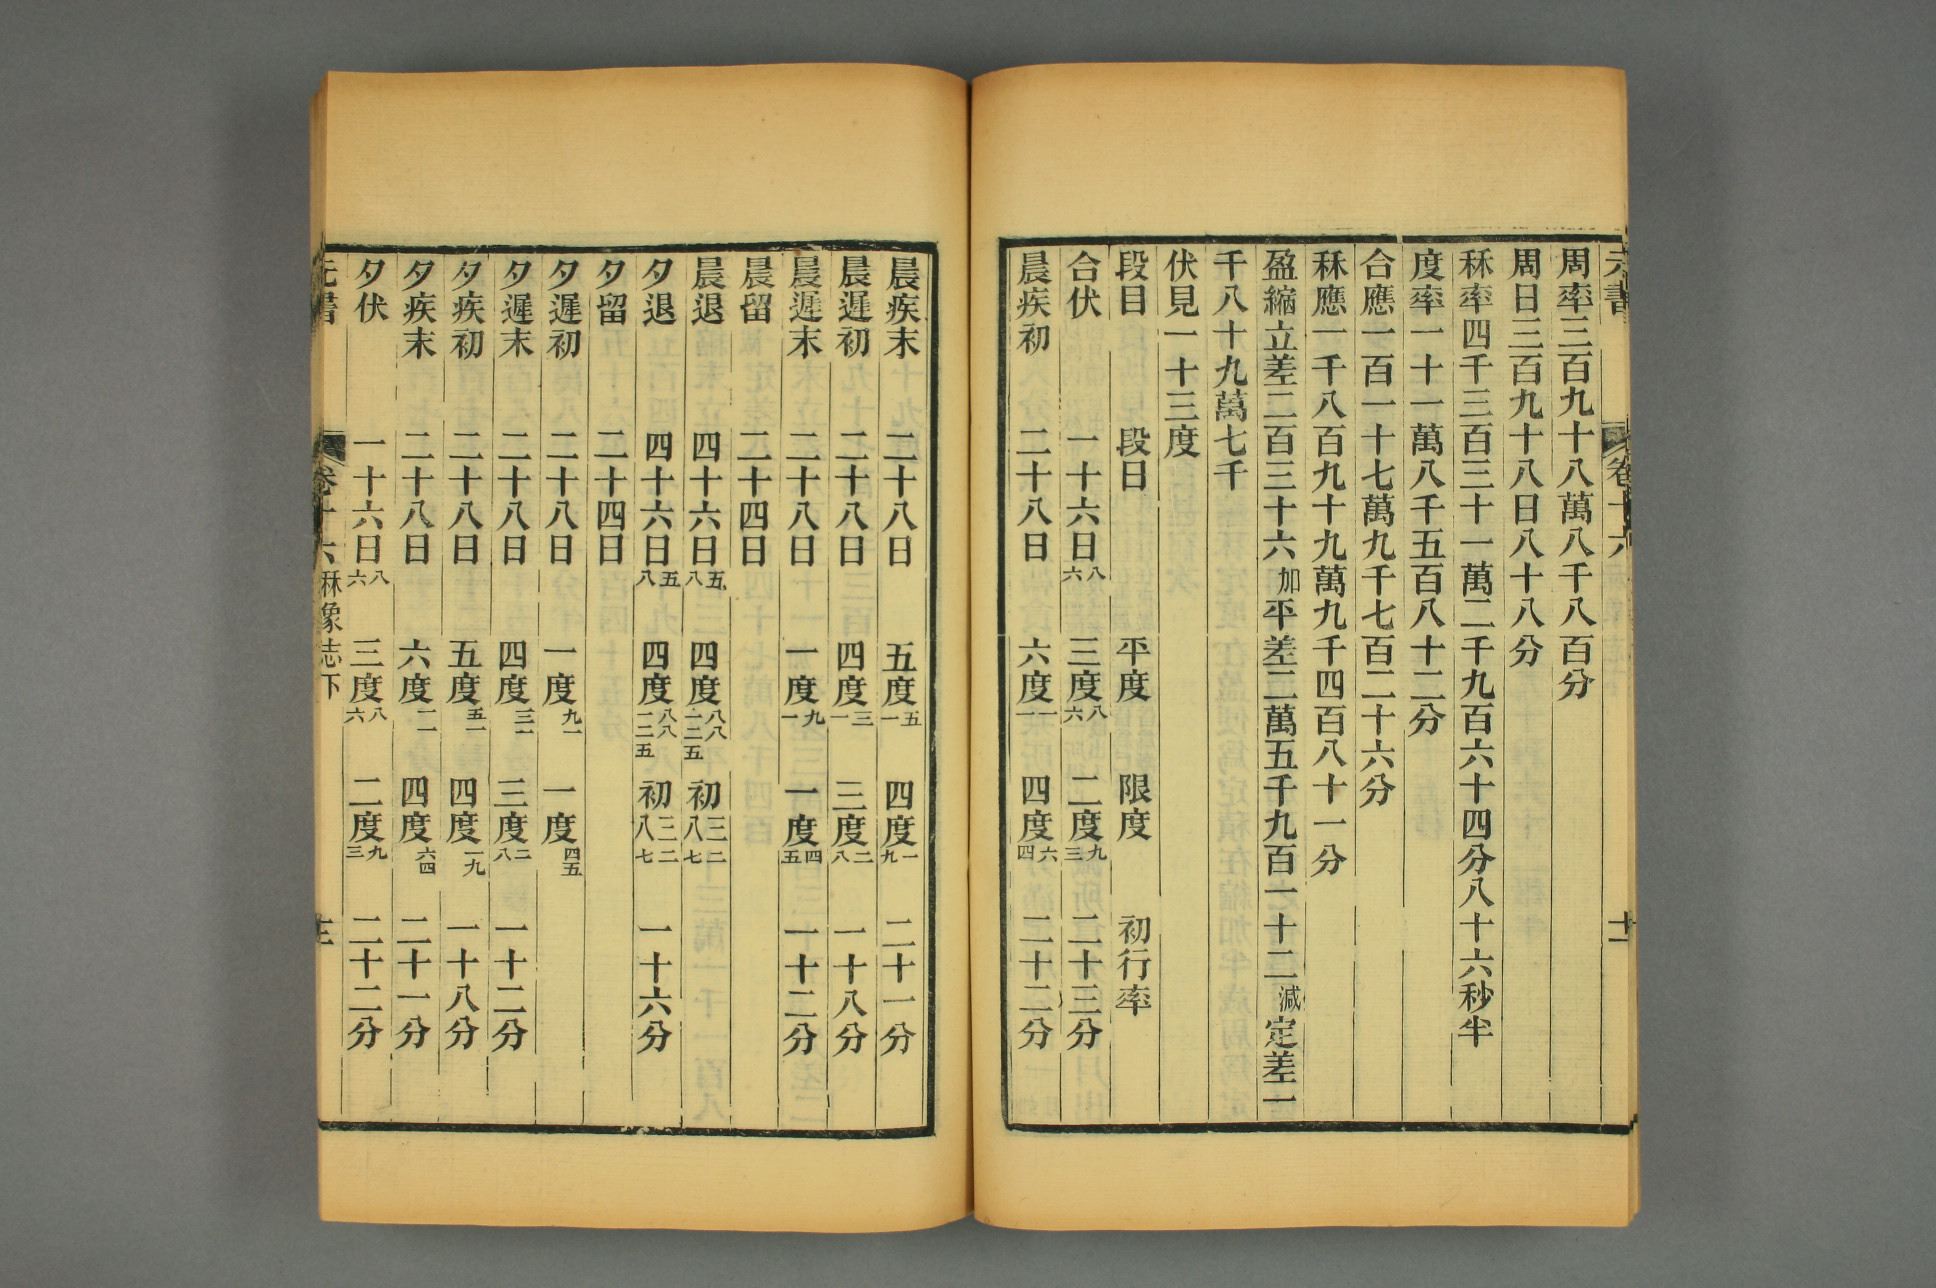 元書 卷十六 十二
周率三百九十八萬八千八百分
周日三百九十八日八十八分
秝率四千三百三十一萬二千九百六十四分八十六秒半
度率一十一萬八千五百八十二分
合應一百一十七萬九千七百二十六分
秝應一千八百九十九萬九千四百八十一分
盈縮立差二百三十六加平差二萬五千九百一十二減定差一
千八十九萬七千
伏見一十三度
段目 段日 平度 限度 初行率
合伏 一十六日八六 三度八六 二度九三 二十三分
晨疾初 二十八日 六度一一 四度六四 二十二分
晨疾末 二十八日 五度五一 四度一九 二十一分
晨遲初 二十八日 四度三一 三度二八 一十八分
晨遲末 二十八日 一度九一 一度四五 一十二分
晨留 二十四日
晨退 四十六日五八 四度八八一二五 初三二八七
夕退 四十六日五八 四度八八一二五 初三二八七 一十六分
夕留 二十四日
夕遲初 二十八日 一度九一 一度四五
夕遲末 二十八日 四度三一 三度二八 一十二分
夕疾初 二十八日 五度五一 四度一九 一十八分
夕疾末 二十八日 六度一一 四度六四 二十一分
夕伏 一十六日八六 三度八六 二度九三 二十二分
元書 卷十六 秝象志下 十三